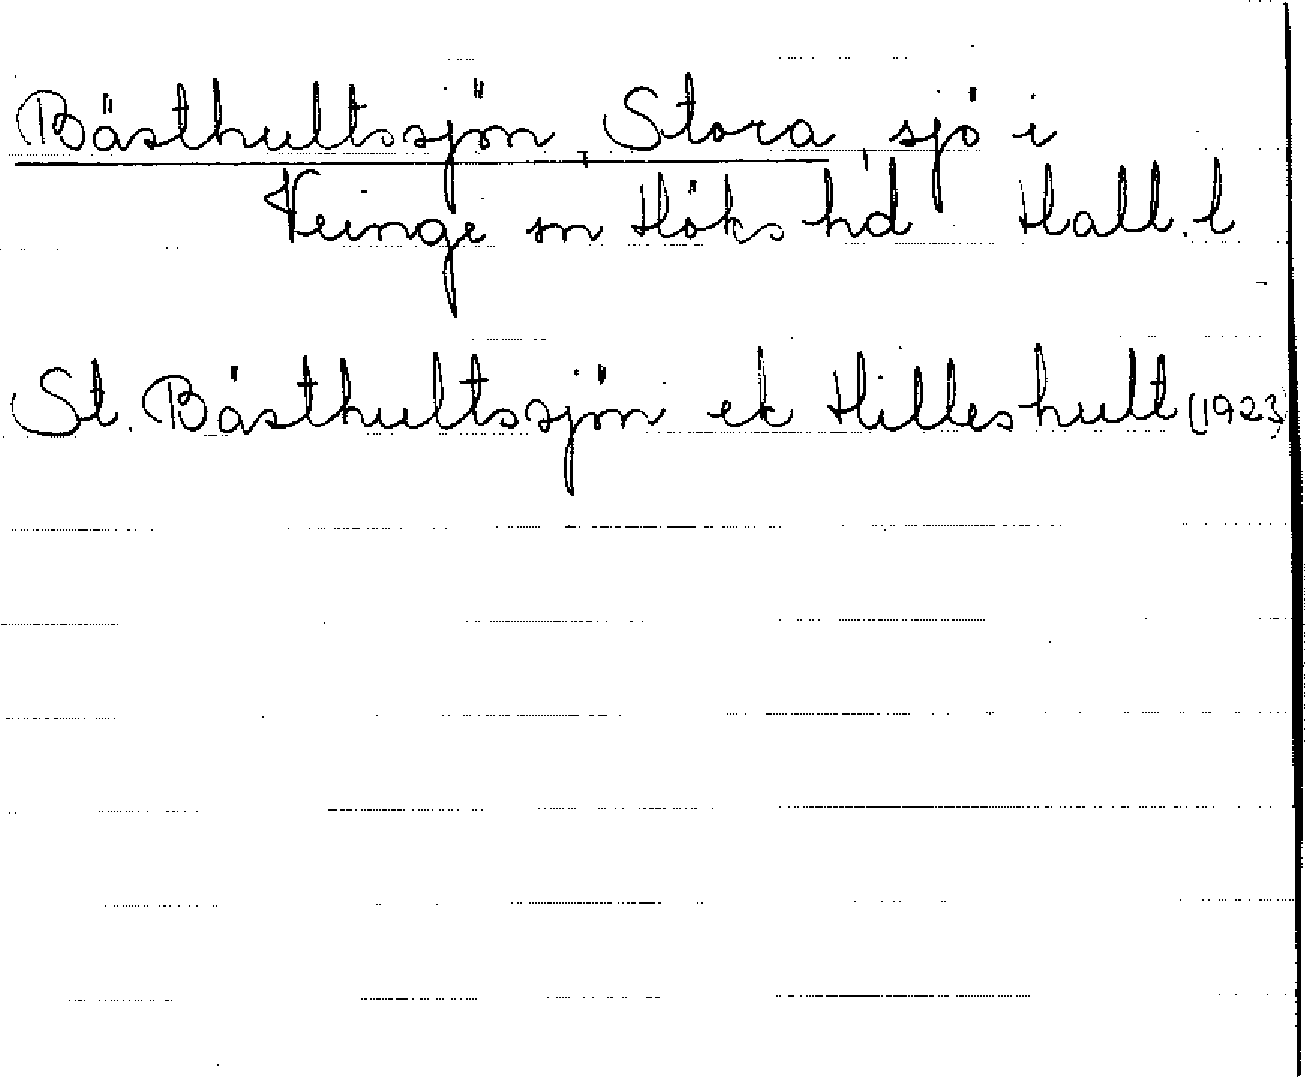 Bästhultssjön, Stora, sjö i
Veinge sn Höks hd Hall. l
St. Bästhultssjön ek Hilleshult (1923)